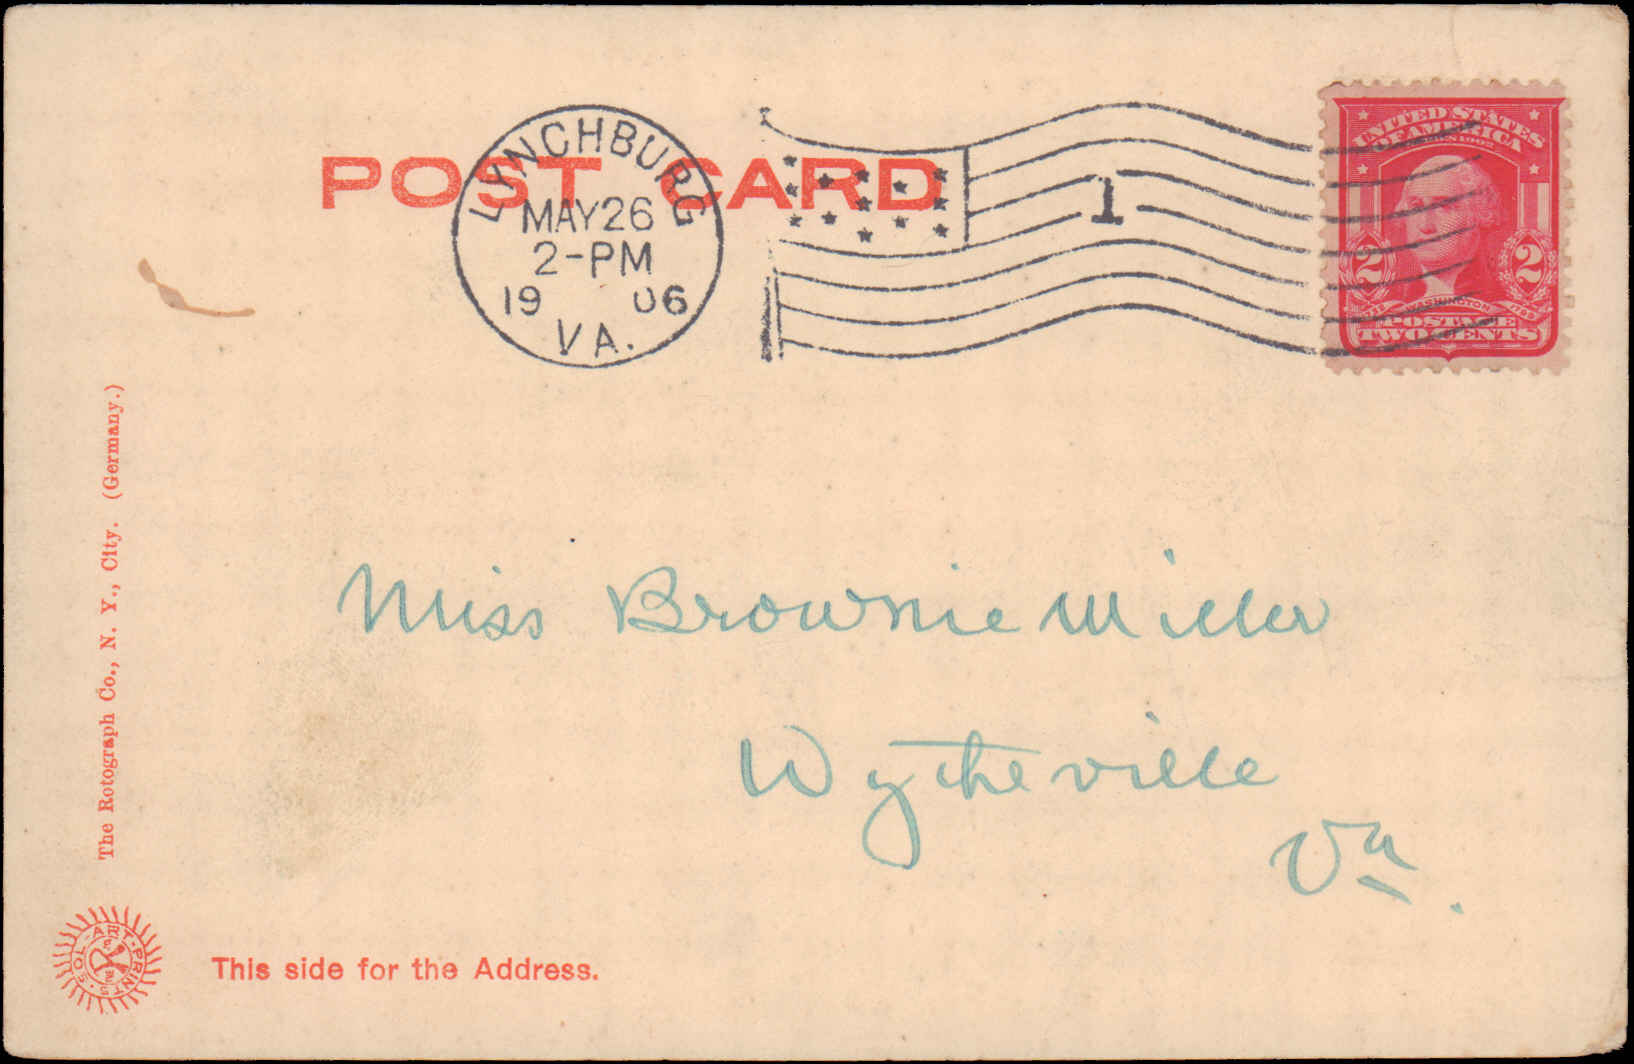 POST CARD
LYNCHBURG
MAY 26
2-PM
19 06
VA.
1
UNITED STATES
OF AMERICA
SERIES 1902
2 2
WASHINGTON
POSTAGE
TWO CENTS
Miss Brownie Miller
Wytheville
Va.
The Rotograph Co., N. Y., City. (Germany.)
SOL·ART·PRINTS
This side for the Address.